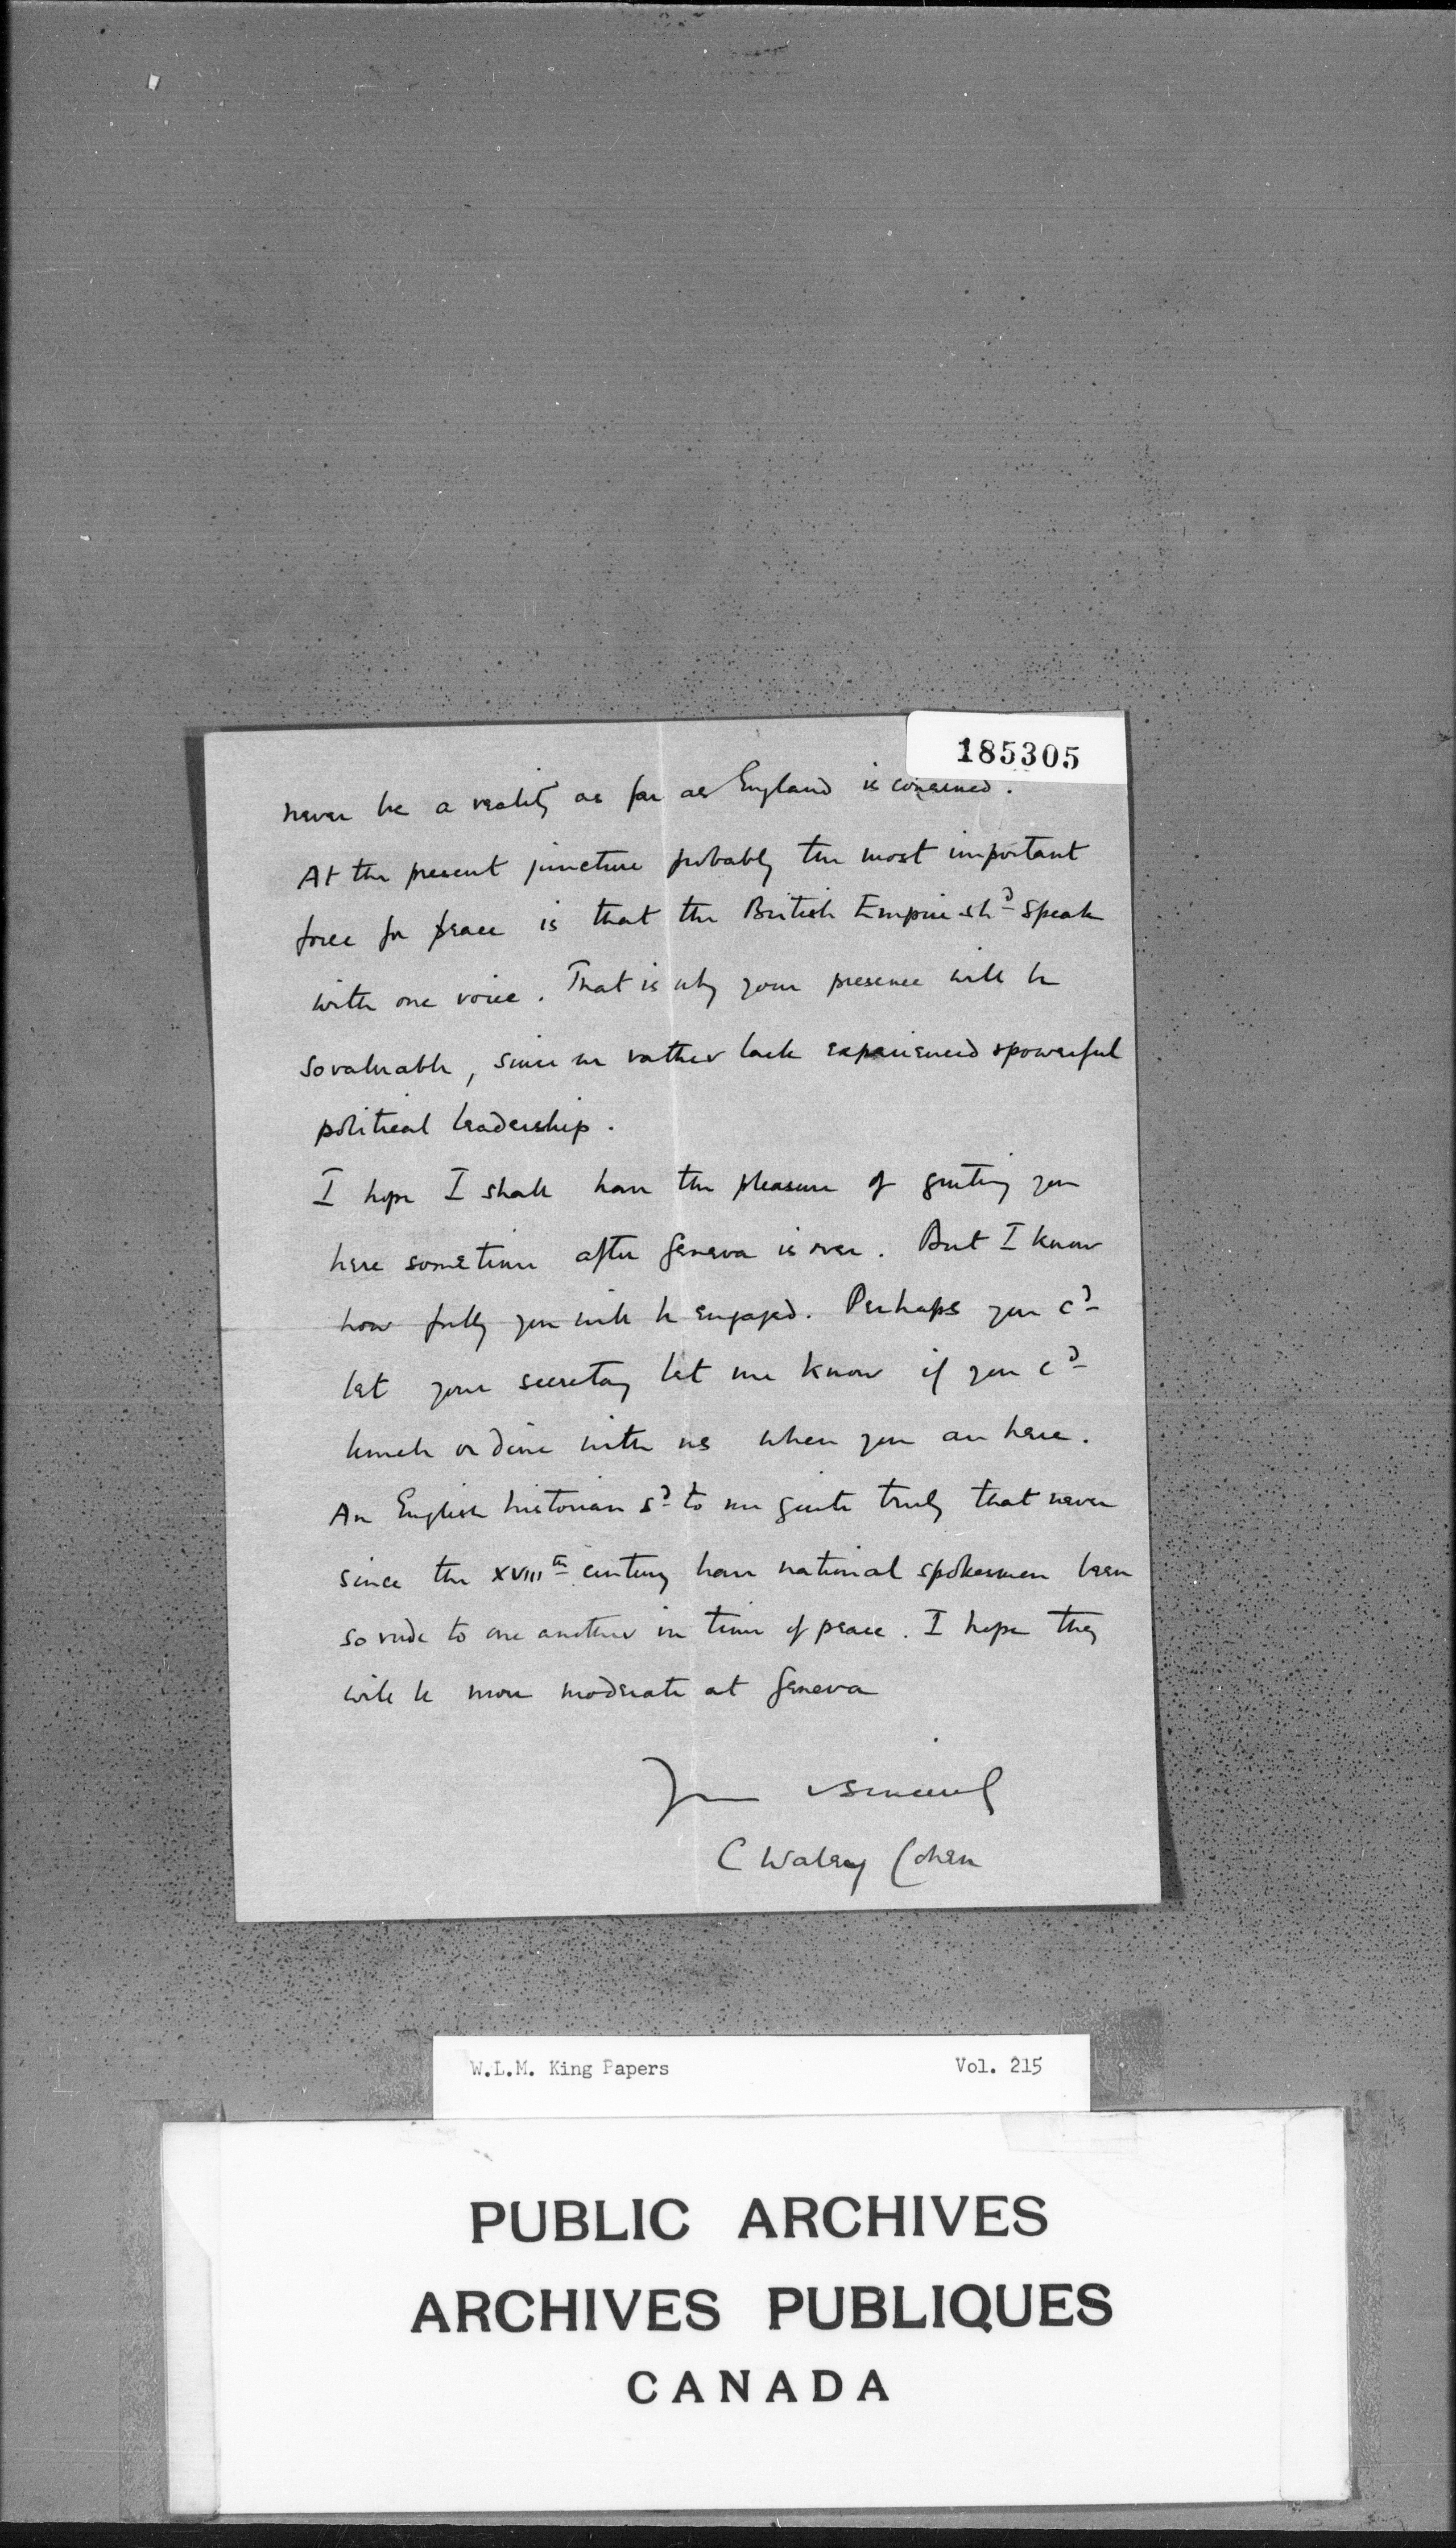 185305
never be a reality as far as England is concerned.
At the present juncture probably the most important
force for peace is that the British Empire shd speak
with one voice. That is why your presence will be
so valuable, since we rather lack experienced & powerful
political leadership.
I hope I shall have the pleasure of greeting you
here sometime after Geneva is over. But I know
how fully you will be engaged. Perhaps you cd
let your secretary let me know if you cd
lunch or dine with us when you are here.
An English historian sd to me quite truly that never
since the XVIIIth century have national spokesmen been
so rude to one another in time of peace. I hope they
will be more moderate at Geneva
Yours sincerely
C Waley Cohen
W.L.M. King Papers Vol. 215
PUBLIC ARCHIVES
ARCHIVES PUBLIQUES
CANADA